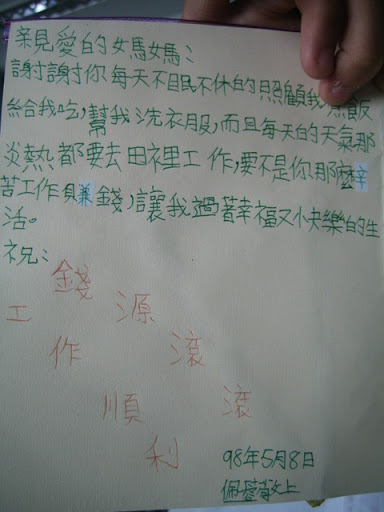 親見愛的媽媽：
謝謝你每天不眠不休的照顧我煮飯
給我吃，幫我洗衣服，而且每天的天氣那
炎熱都要去田裡工作，要不是你那麼辛
苦工作賺錢，讓我過著幸福又快樂的生
活。
祝：
錢源滾滾
工作順利
98年5月8日
敬上